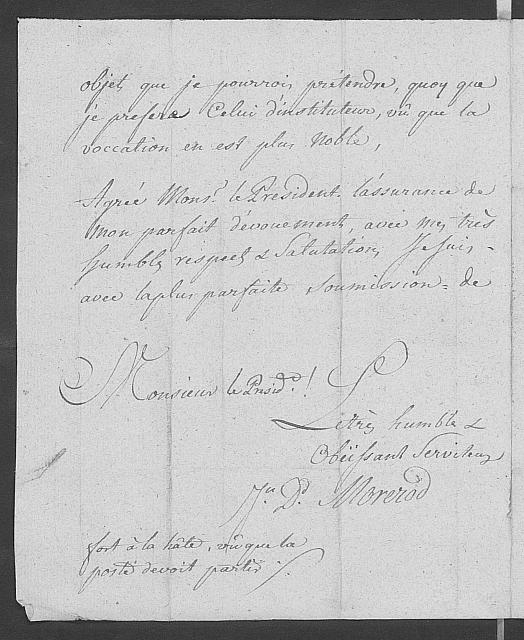 objets que je pourrois prétendre, quoy que
je prefere Celui d'instituteur, vû que la
voccation en est plus Noble,
Agréé Mons.r le President l'assurance de
mon parfait dévouement, avec mes très
humbles respects & Salutations, Je suis -
avec la plus parfaite Soumission = de
Monsieur le Presid.t !
Le très humble &
Obéïssant Serviteur
Jn. Dd. Morerod
fort à la hâte, vû que la
poste devoit partir ./.